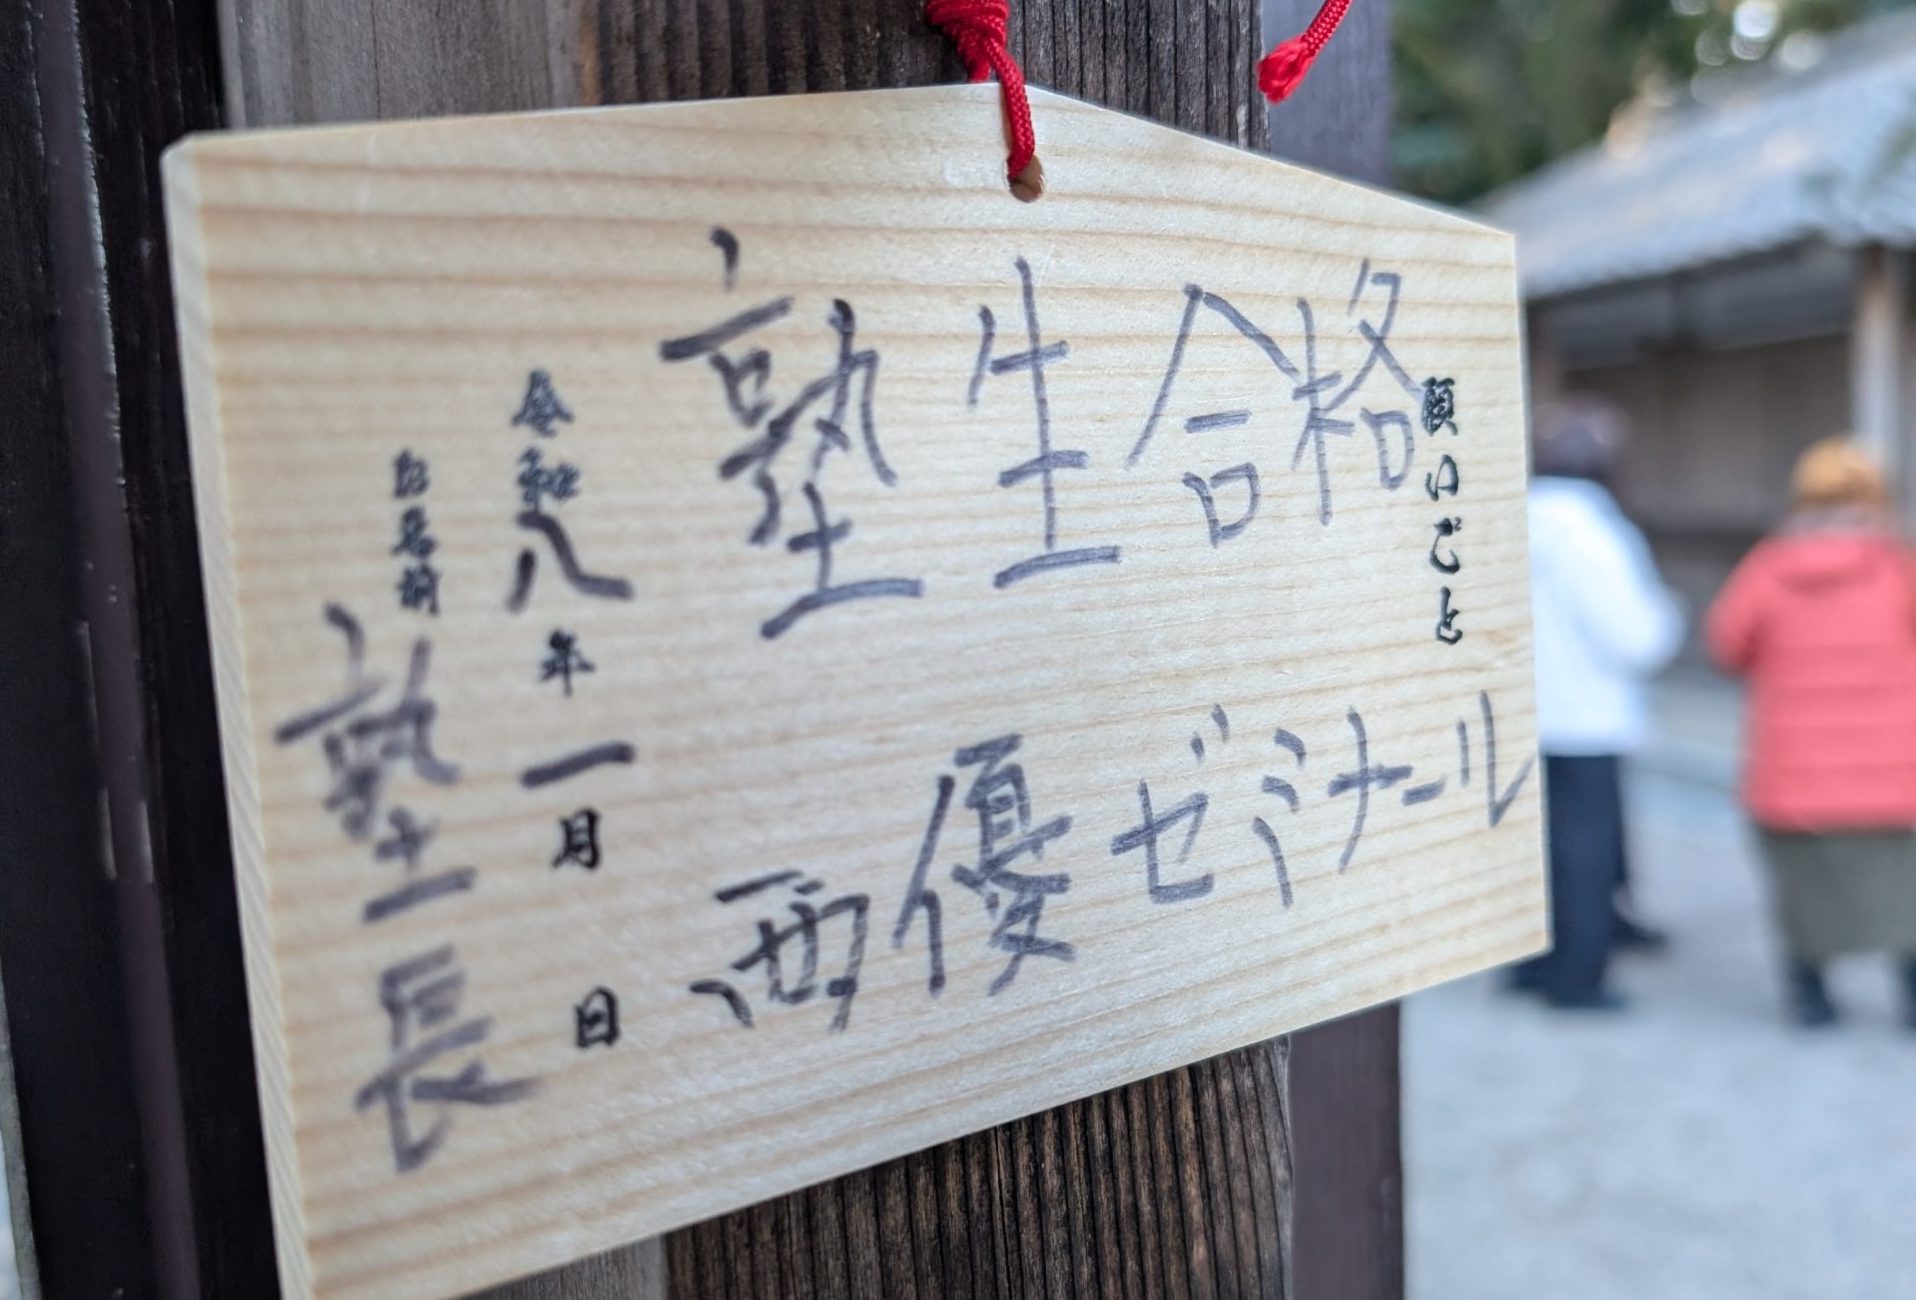 願いごと
塾生合格
西優ゼミナール
令和八年一月 日
お名前
塾長